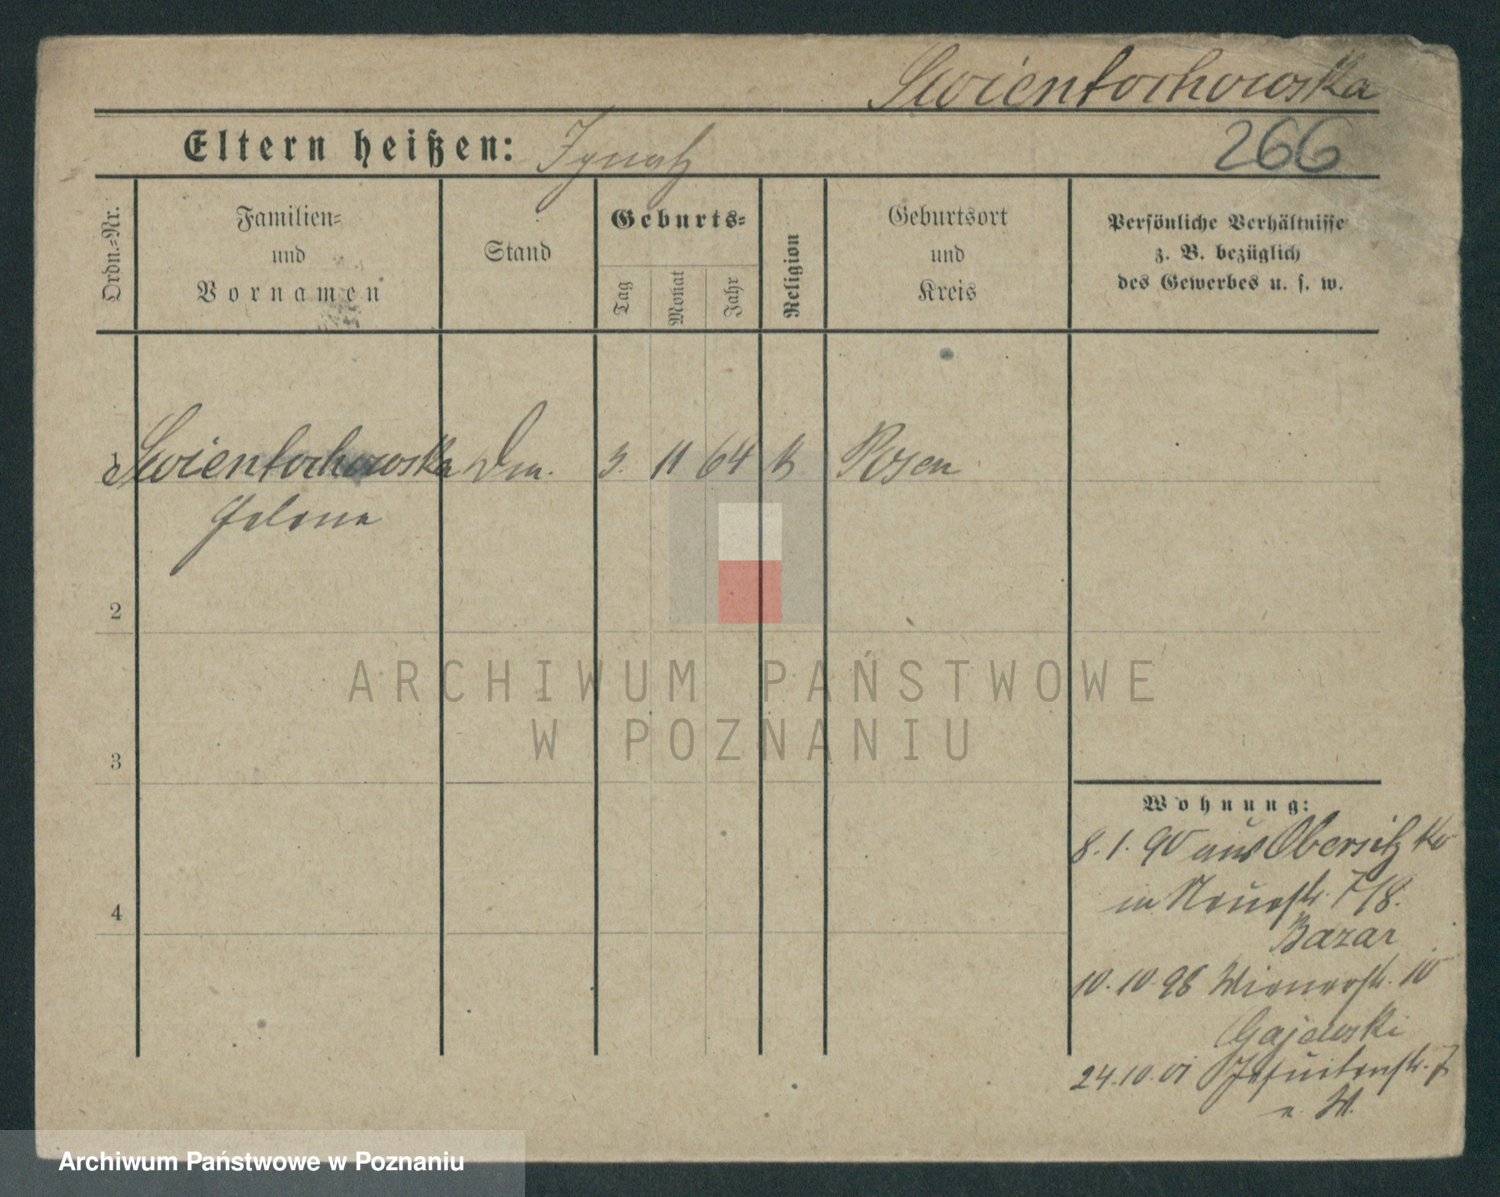 Swientochowska
Eltern heißen: Ignatz
266
Ordn.-Nr.
Familien-
und
Vornamen
Stand
Geburts-
Tag
Monat
Jahr
Religion
Geburtsort
und
Kreis
Persönliche Verhältnisse
z. B. bezüglich
des Gewerbes u. s. w.
1 Swientochowska 3. 11 64 k Posen
Helena
2
3
4
ARCHIWUM PAŃSTWOWE
W POZNANIU
Wohnung:
8.1.90 aus Obersitzko
in Neuestr. 7/8.
Bazar
10.10.98 Wienerstr. 10
Gajewski
24.10.01 Jesuitenstr.
Archiwum Państwowe w Poznaniu